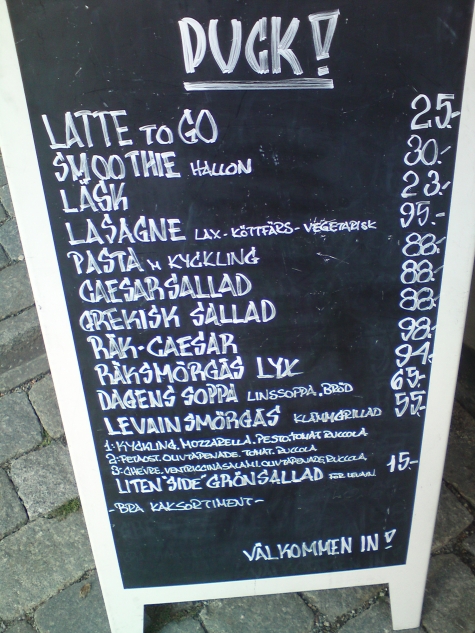 DUCK!
LATTE TO GO 25:-
SMOOTHIE HALLON 30:-
LÄSK 23:-
LASAGNE LAX - KÖTTFÄRS - VEGETARISK 95:-
PASTA M KYCKLING 88:-
CAESARSALLAD 88:-
GREKISK SALLAD 88:-
RÄK-CAESAR 98:-
RÄKSMÖRGÅS LYX 94:-
DAGENS SOPPA LINSSOPPA, BRÖD 65:-
LEVAIN SMÖRGÅS KLÄMGRILLAD 55:-
1: KYCKLING, MOZZARELLA, PESTO, TOMAT, RUCCOLA
2: FETAOST, OLIVTAPENADE, TOMAT, RUCOLA
3: CHÈVRE, VENTRICCINASALAMI, OLIVTAPENADE, RUCCOLA,
LITEN "SIDE" GRÖNSALLAD FÖR LEVAIN 15:-
- BRA KAKSORTIMENT -
VÄLKOMMEN IN!